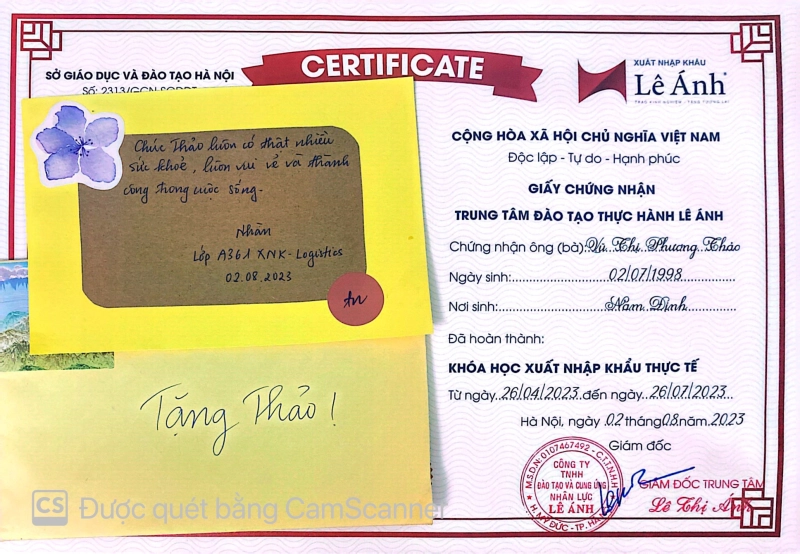 SỞ GIÁO DỤC VÀ ĐÀO TẠO HÀ NỘI
CERTIFICATE
XUẤT NHẬP KHẨU
Lê Ánh
TRAO KINH NGHIỆM - TRAO TƯƠNG LAI
CỘNG HÒA XÃ HỘI CHỦ NGHĨA VIỆT NAM
Độc lập - Tự do - Hạnh phúc
GIẤY CHỨNG NHẬN
TRUNG TÂM ĐÀO TẠO THỰC HÀNH LÊ ÁNH
Chứng nhận ông (bà): Vũ Thị Phương Thảo
Ngày sinh: 02/07/1998
Nơi sinh: Nam Định
Đã hoàn thành:
KHÓA HỌC XUẤT NHẬP KHẨU THỰC TẾ
Từ ngày 26/04/2023 đến ngày 26/07/2023
Hà Nội, ngày 02 tháng 08 năm 2023
Giám đốc
M.S.D.N: 0107467492 - C.T.T.N.H.H
CÔNG TY
TNHH
ĐÀO TẠO VÀ CUNG ỨNG
NHÂN LỰC
LÊ ÁNH
GIÁM ĐỐC TRUNG TÂM
Lê Thị Ánh
Chúc Thảo luôn có thật nhiều
sức khoẻ, luôn vui vẻ và thành
công trong cuộc sống.
Nhàn
Lớp A361 XNK-Logistics
02.08.2023
Tặng Thảo!
CS Được quét bằng CamScanner